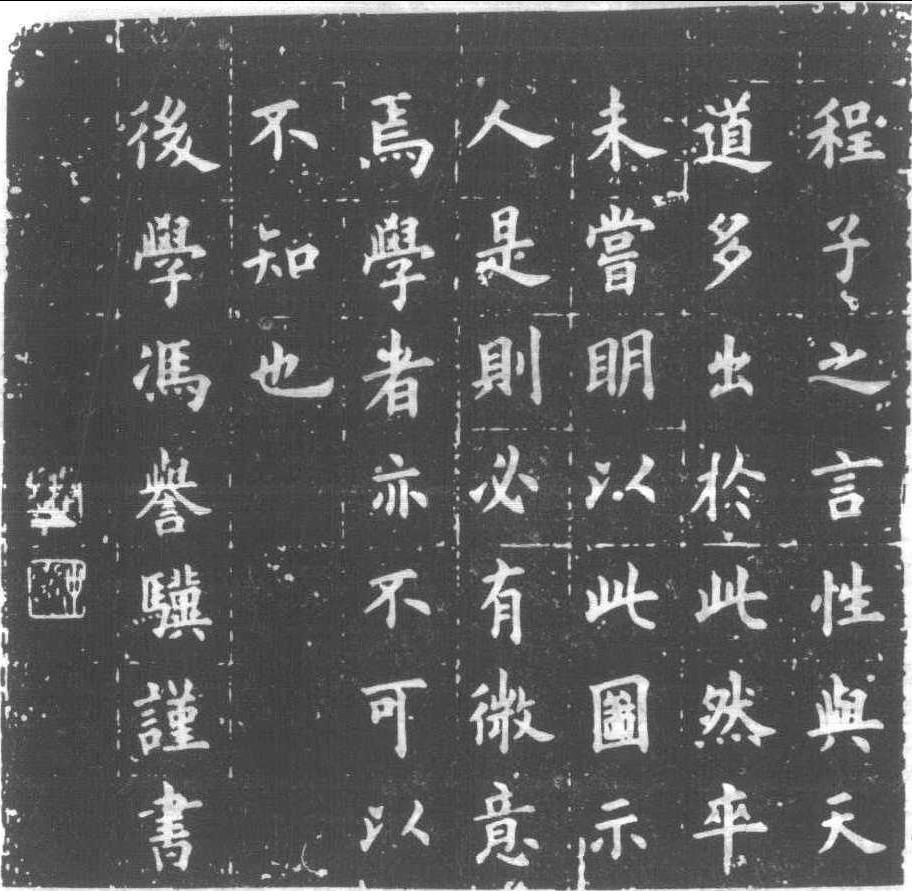 程子之言性與天
道多出於此然卒
未嘗明以此圖示
人是則必有微意
焉學者亦不可以
不知也
後學馮譽驥謹書